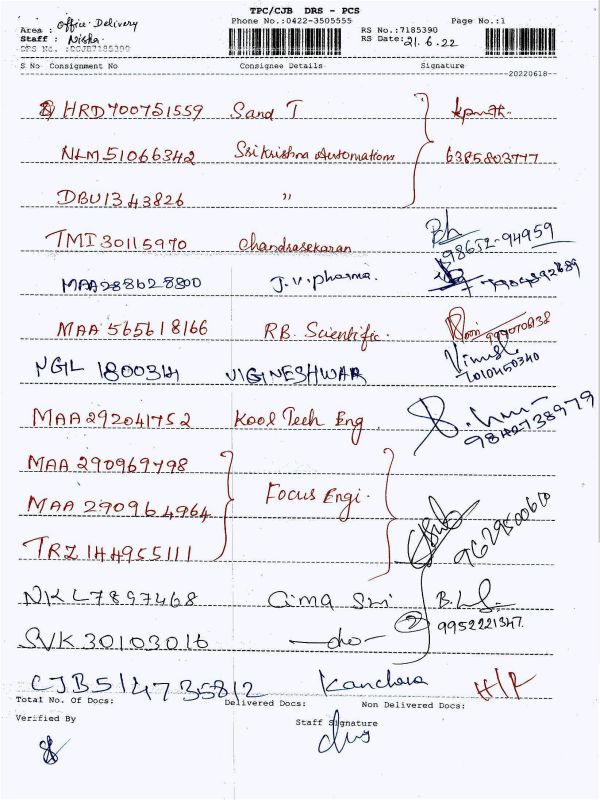 TPC/CJB DRS - PCS
Area : office Delivery Phone No.:0422-3505555 Page No.:1
Staff : Nisha RS No.:7185390
DRS No. :DCJB7185390 RS Date: 21.6.22
S No Consignment No Consignee Details Signature
20220618
HRD700751559 Sand T
NLM51066342 Sri Krishna Automation 6385803777
DBU1343826 "
TMI30115970 Chandrasekaran Bh 98652-94959
MAA288628800 J.V. pharma.
MAA 565618166 RB. Scientific.
NGIL 1800341 VIGINESHWAR Vimal 7010450340
MAA292041752 Kool Tech Eng. 9842738979
MAA 290969798
MAA 290964964 Focus Engi. 9629500610
TRZ144955111
NKL7897468 Cima Sri
SVK30103016 -do- 2 9952221347.
CJB514735812 Kanchana H/R
Total No. Of Docs: Delivered Docs: Non Delivered Docs:
Verified By Staff Signature